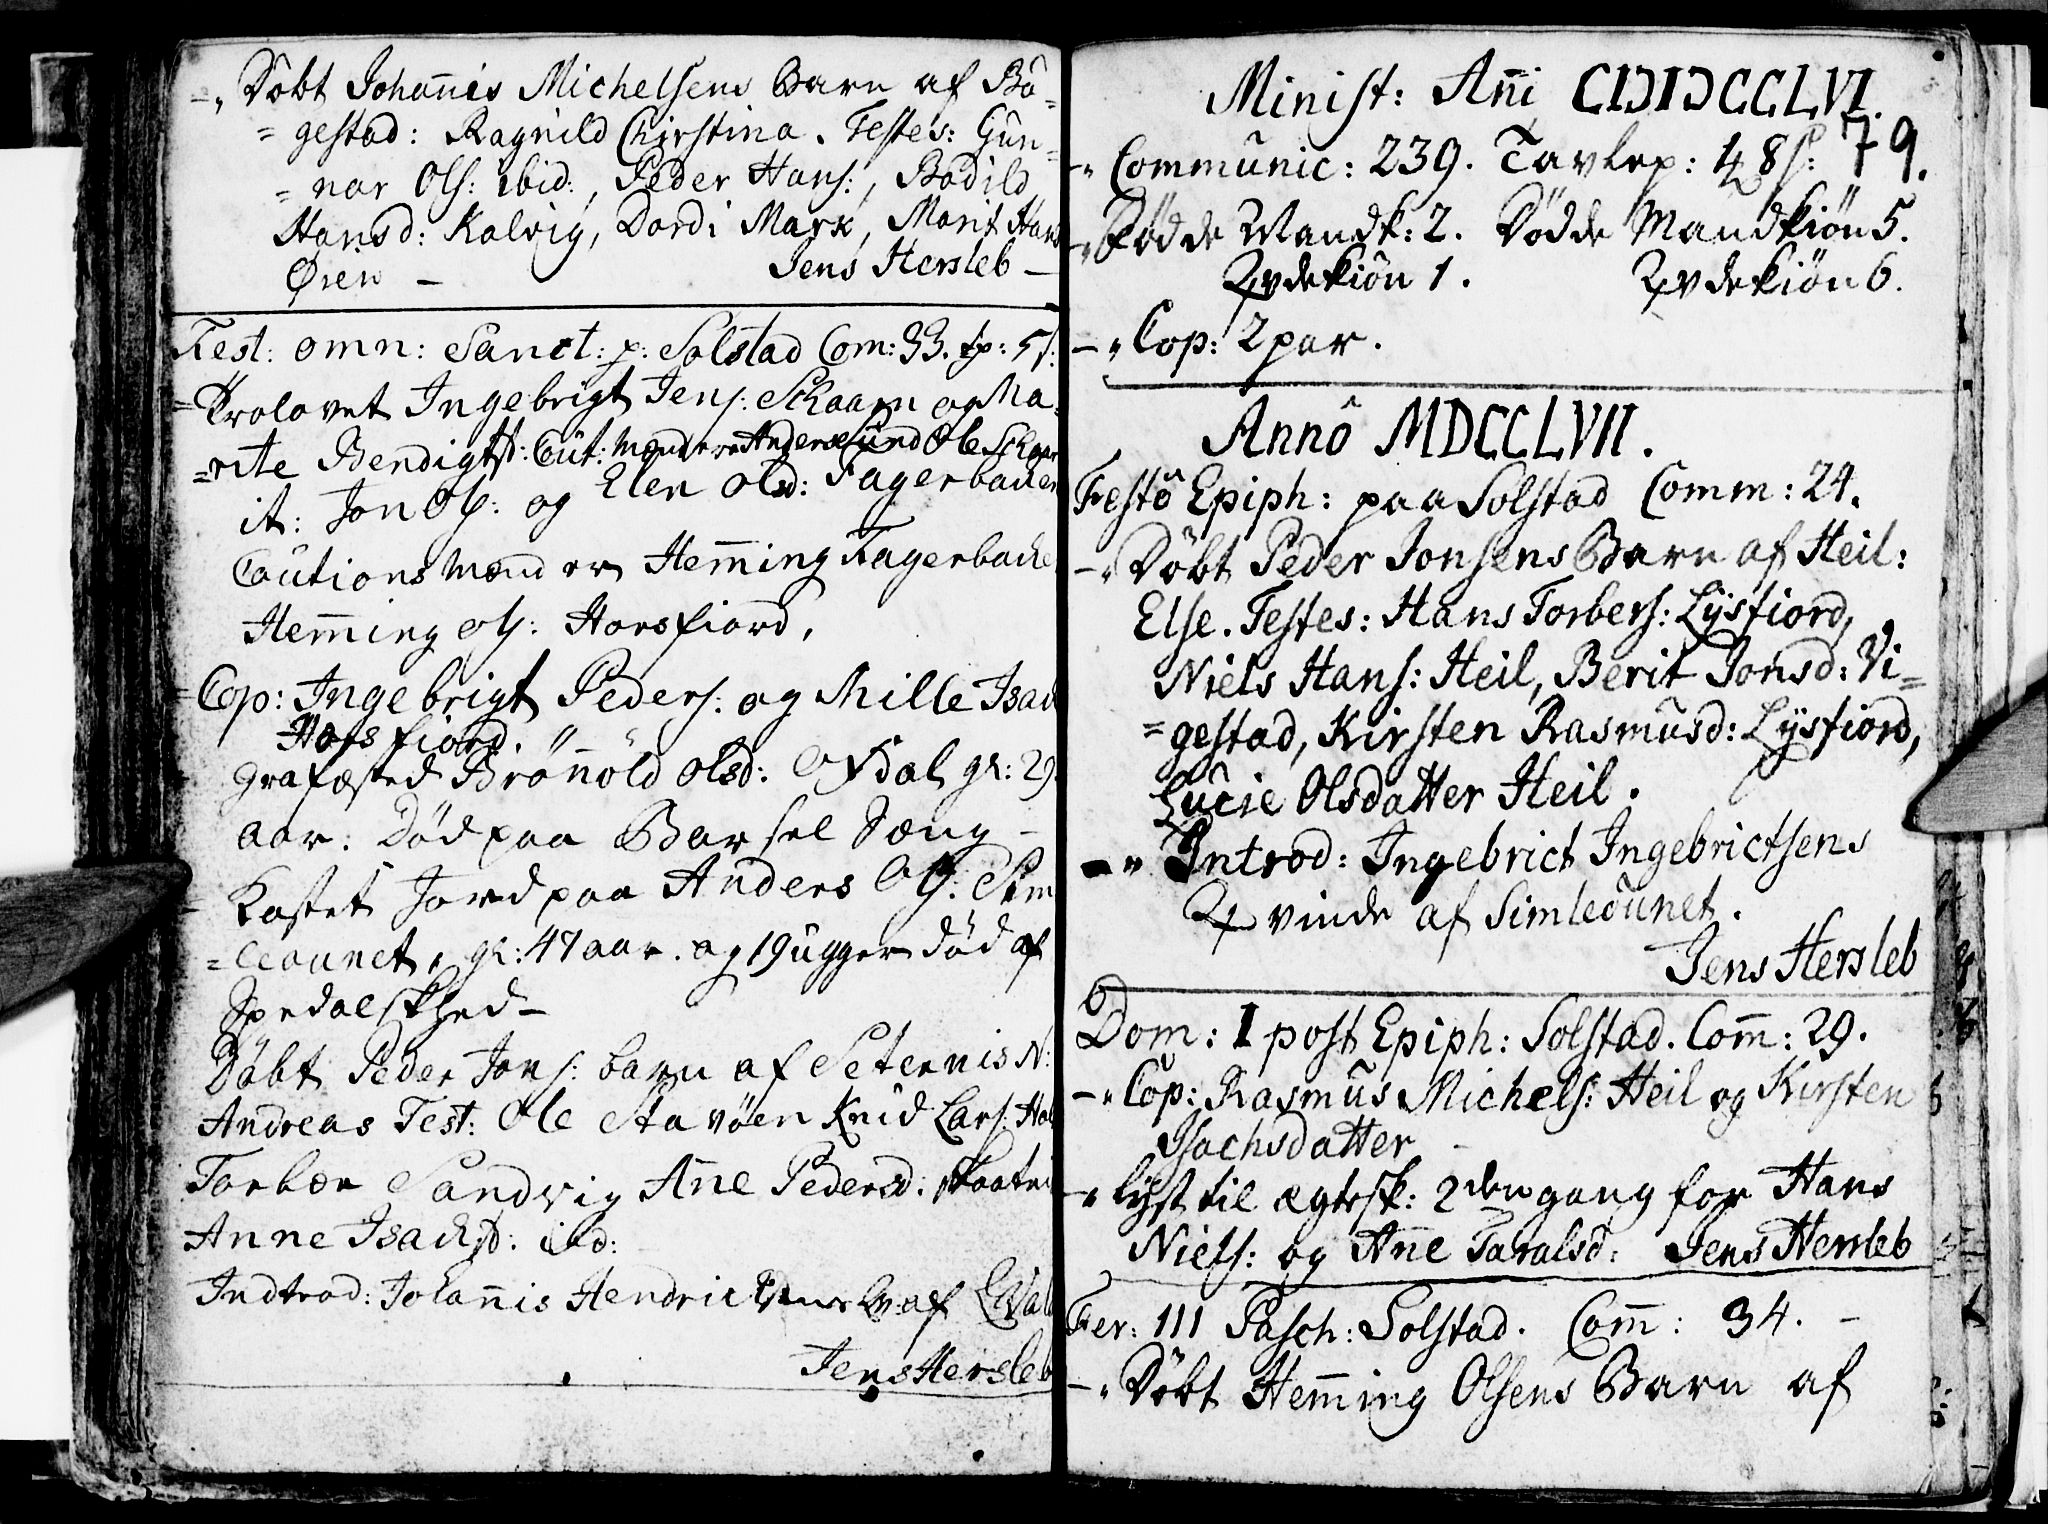 -" Döbt Johannis Michelsens Barn af Bô=
= gestad: Ragnild Chirstina. Testes: Gun=
= nar Ols: ibid:, Peder Hans:, Bodild
Hansd: Kalvig, Dordi Marx, Marit Hans
Øren - Jens Hersleb -
Fest: omn: Sanct: p: Solstad Com: 33. tp: 5 s:
= Trolovet Ingebrigt Jens: Schaam og Ma=
= rite Bendigtsd: Caut: Mænd ere Anders Sund Ole Schaam
it: Jon Ols: og Elen Olsd: Fagerbacken
Cautions Mænd ere Hem̄ing Fagerbacke
Hem̄ing Ols: Horsfiord,
= Cop: Ingebrigt Peders: og Mille Isach
Horsfiord.
grafæsted Brönnöld Olsd: Ofdal gl: 29
aar: død paa Barsel Sæng -
- Kastet Jord paa Anders Ols: Sim
= leounet, gl: 47 aar. og 19 ugger død af
Spedalskhed -
Döbt Peder Jons: barn af Seternis N:
Andreas Test: Ole Stavöen Knid Lars: Hal
Torbær Sandvig Ane Pedersd:
Anne Isachsd: ibd:
Indtrod: Johan̄is Hendrichsens Qv: af
Jens Hersleb
Minist: An̄i CIƆIƆCCLVI.
79.
-" Communic: 239. Tavlep: 4 8 s:
-" Födde Mandk: 2. Dödde Mandkiön 5.
Qvdekiön 1. Qvdekiön 6.
-" Cop: 2 par.
Annô MDCCLVII.
Festô Epiph: paa Solstad Comm: 24.
-" Döbt Peder Jonsens Barn af Heil:
Else. Testes: Hans Torbers: Lysfiord,
Niels Hans: Heil, Berit Jonsd: Vi=
= gestad, Kirsten Rasmusd: Lysfiord,
Lucie Olsdatter Heil.
-" Introd: Ingebrict Ingebrictsens
Qvinde af Simleounet.
Jens Hersleb
Dom: I post Epiph: Solstad. Com̄: 29.
-" Cop: Rasmus Michels: Heil og Kirsten
Isachsdatter
-" lyst til ægtesk: 2den gang for Hans
Niels: og An̄e Taralsd: Jens Hersleb
Fer: III Pasch: Solstad. Com̄: 34. -
-" Döbt Hem̄ing Olsens Barn af